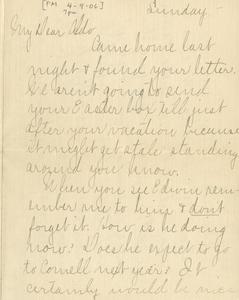 [PM 4-9-06]
Sunday -
My Dear Aldo,
Came home last
night & found your letter.
We aren't going to send
your Easter box till just
after your vacation because
it might get stale standing
around you know.
When you see Edwin rem-
ember me to him & don't
forget it. How is he doing
now? Does he expect to go
to Cornell next year? It
certainly would be nice